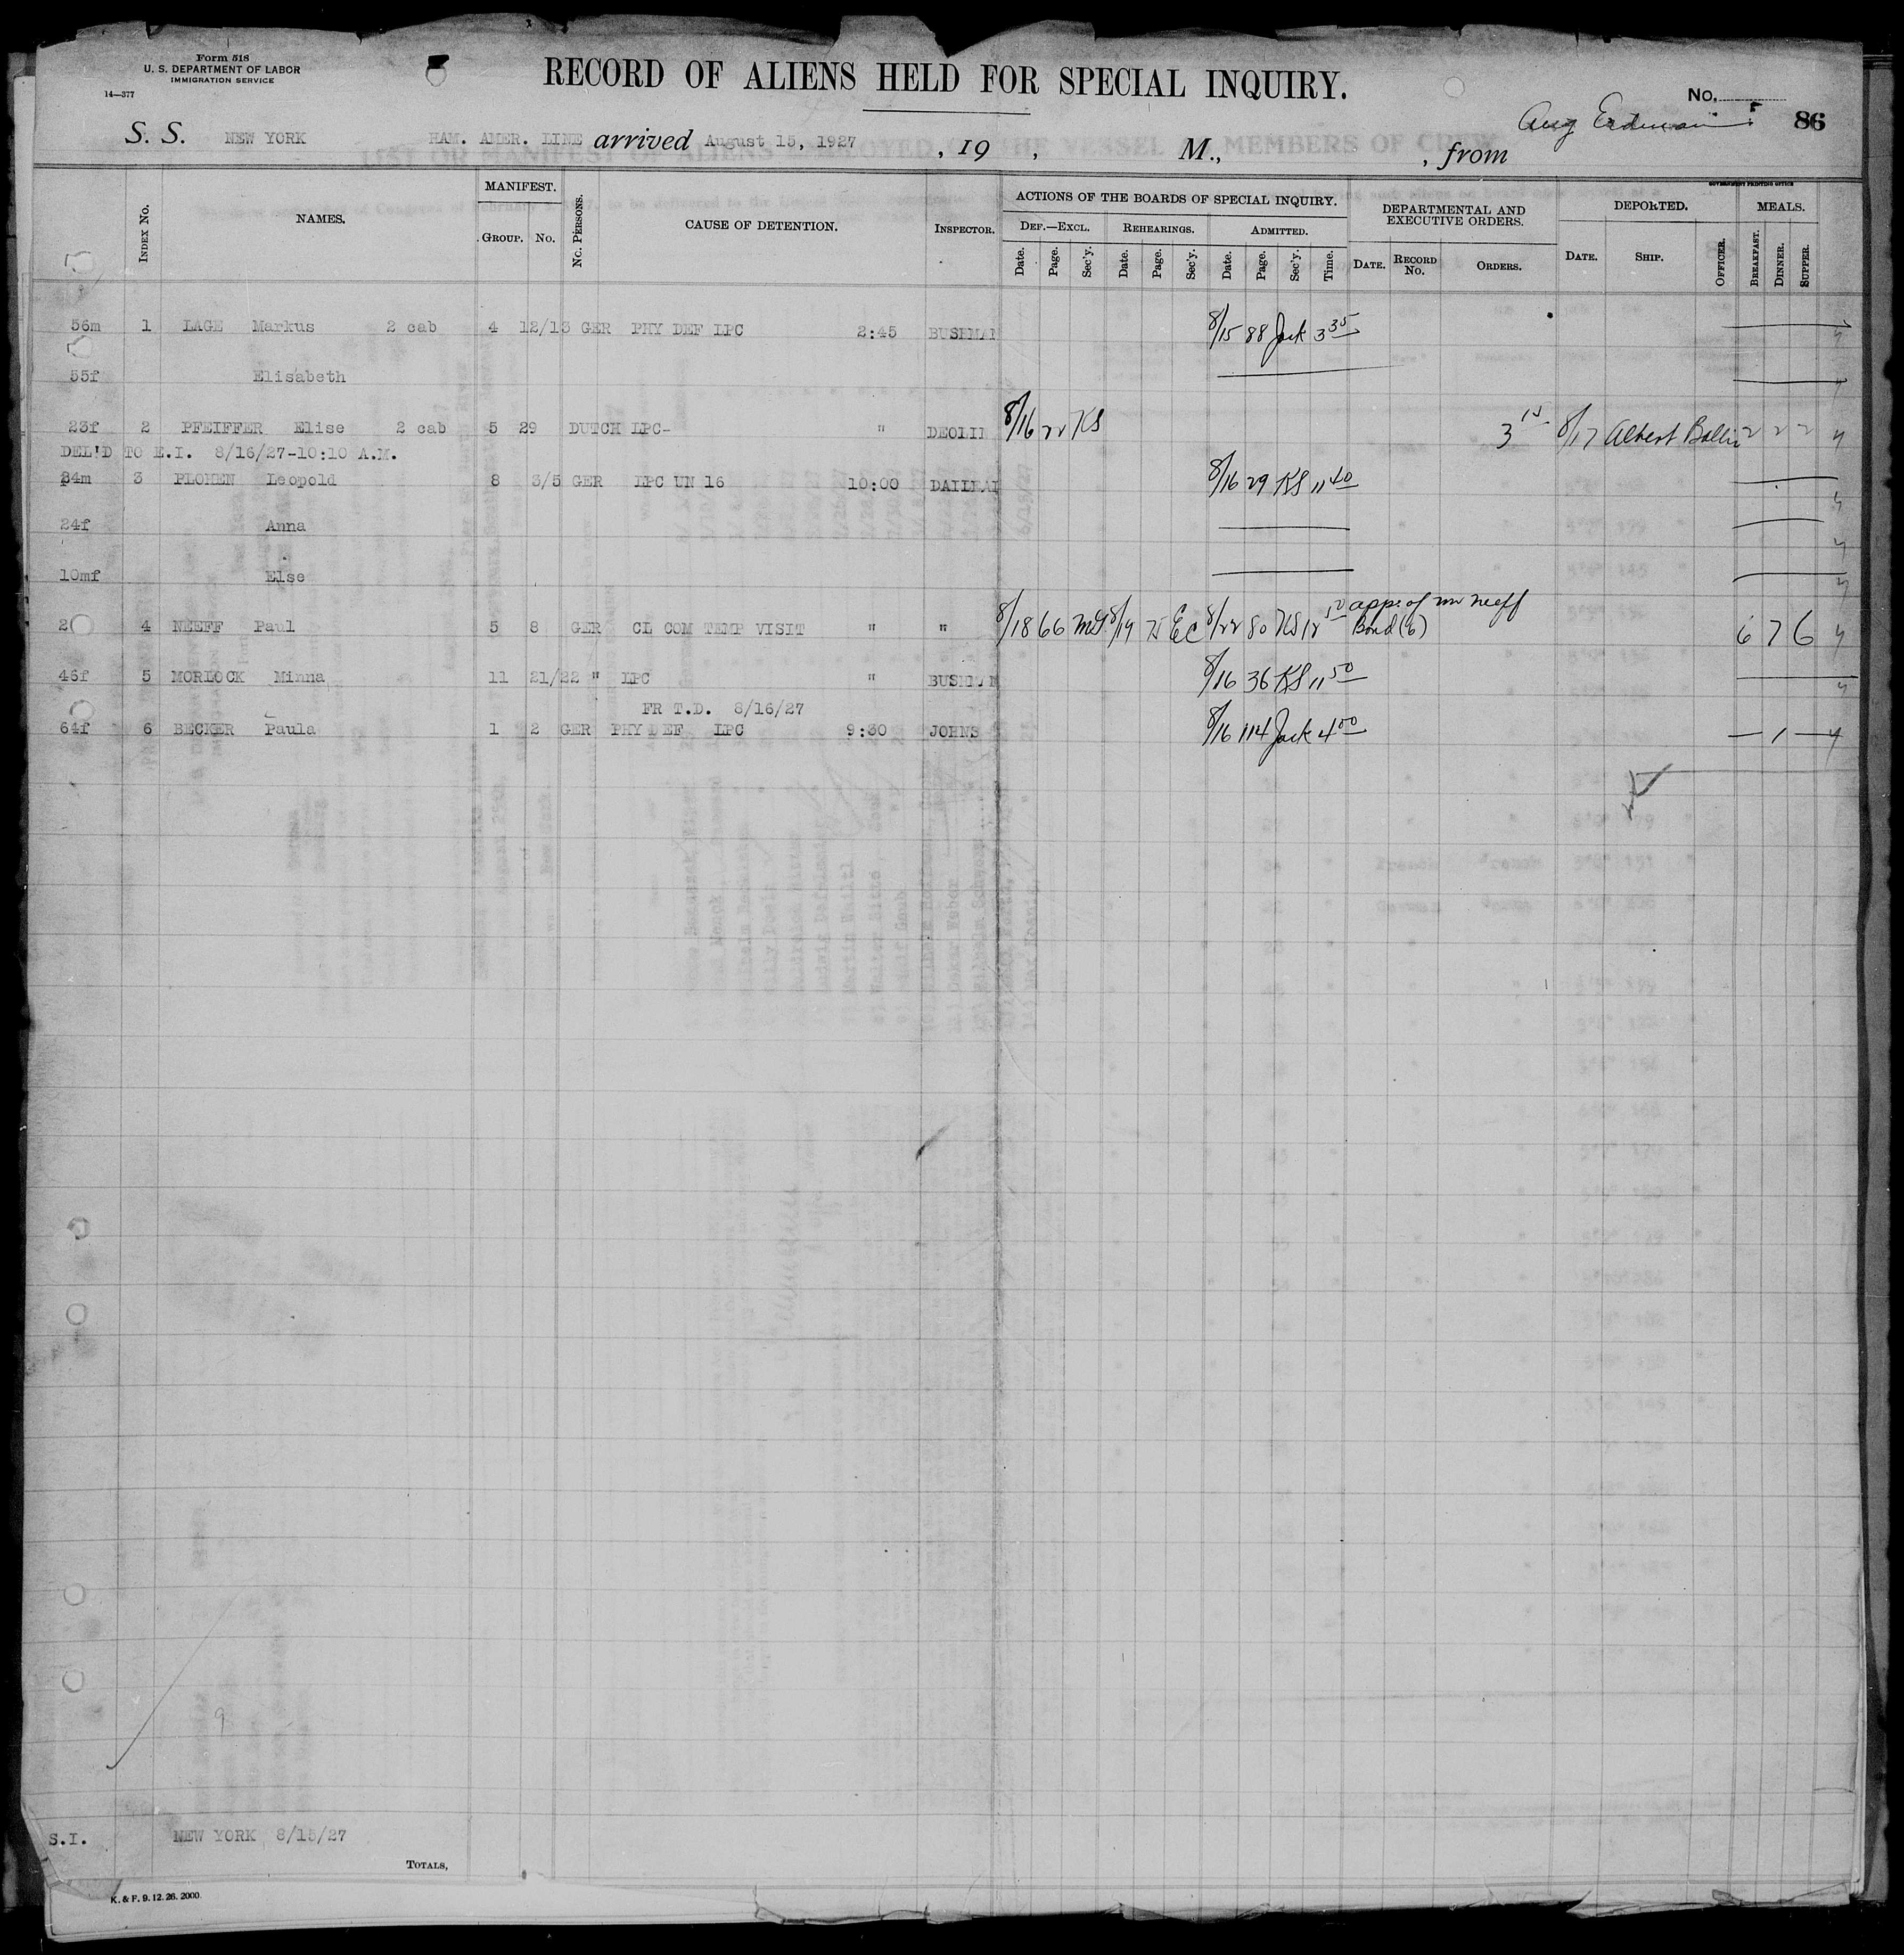 Form 518
U. S. DEPARTMENT OF LABOR
IMMIGRATION SERVICE
14—377
RECORD OF ALIENS HELD FOR SPECIAL INQUIRY.
No.
86
S. S. NEW YORK HAM. AMER. LINE arrived August 15, 1927 , 19 , M., , from
GOVERNMENT PRINTING OFFICE
INDEX No. NAMES. MANIFEST. GROUP. No. No. PERSONS. CAUSE OF DETENTION. INSPECTOR. ACTIONS OF THE BOARDS OF SPECIAL INQUIRY. DEPARTMENTAL AND EXECUTIVE ORDERS. DEPORTED. MEALS.
DEF.—EXCL. REHEARINGS. ADMITTED.
Date. Page. Sec'y. Date. Page. Sec'y. Date. Page. Sec'y. Time. DATE. RECORD No. ORDERS. DATE. SHIP. OFFICER. BREAKFAST. DINNER. SUPPER.
56m 1 LAGE Markus 2 cab 4 12/13 GER PHY DEF LPC 2:45 BUSHMAN 8/15 88 Jack 3 35
55f Elisabeth
23f 2 PFEIFFER Elise 2 cab 5 29 DUTCH LPC- " DEOLII 8/16 22 KS 3 15 8/17 Albert Ballin 2 2 2
DEL'D TO E.I. 8/16/27-10:10 A.M.
34m 3 PLOHEN Leopold 8 3/5 GER LPC UN 16 10:00 8/16 29 KS 11 40
24f Anna
10mf Else
4 NEEFF Paul 5 8 GER CL COM TEMP VISIT " " 8/18 66 8/19 75 EC 8/22 80 KS 12 50 app. of Neeff
Bond (6) 6 7 6
46f 5 MORLOCK Minna 11 21/22 " LPC " BUSHMAN 8/16 36 KS 11 50
FR T.D. 8/16/27
64f 6 BECKER Paula 1 2 GER PHY DEF LPC 9:30 JOHNS 8/16 114 Jack 4 00 — 1 —
9
S.I. NEW YORK 8/15/27
TOTALS,
K. & F. 9. 12. 26. 2000